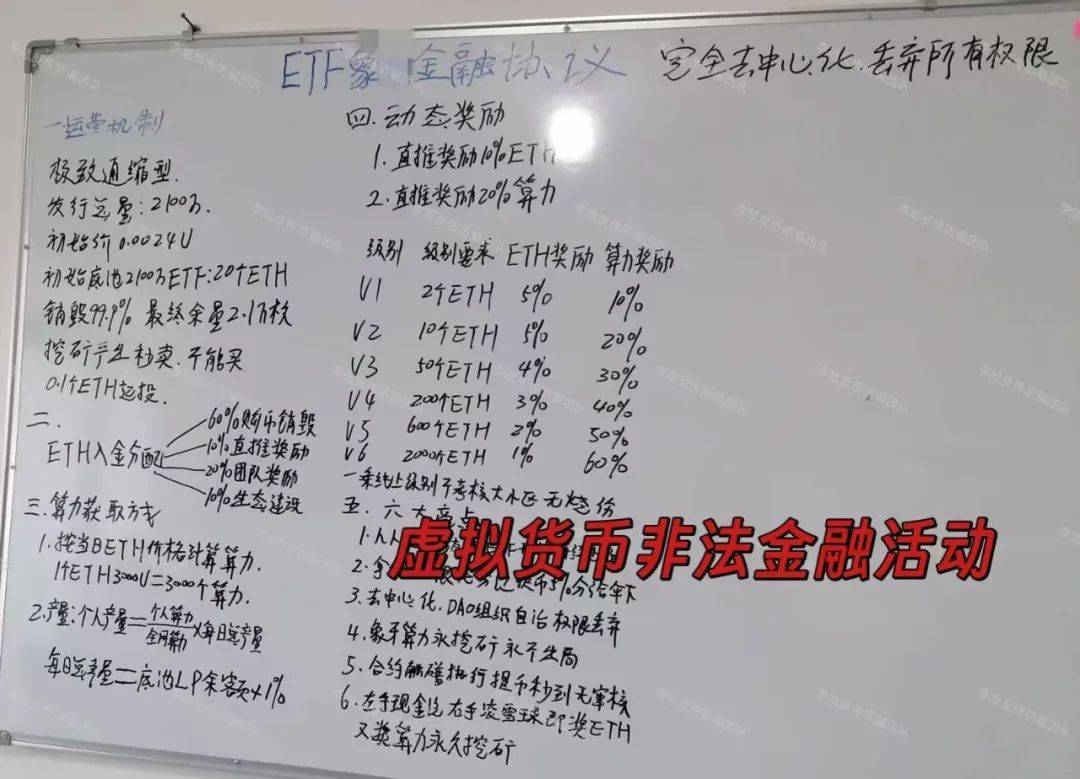 ETF象 金融协议 完全去中心化.丢弃所有权限
一.运营机制
极致通缩型.
发行总量:2100万.
初始价0.0024U
初始底池2100万ETF:20个ETH
销毁99.9% 最终余量2.1万枚
挖矿产生秒卖.不能买
0.1个ETH起投.
二.
ETH入金分配
60%购币销毁
10%直推奖励
20%团队奖励
10%生态建设
三.算力获取方式
1.按当日ETH价格计算算力.
1个ETH3000U=3000个算力.
2.产量:个人产量=个人算力/全网算力×每日总产量
每日总产量=底池LP余额×1%
四.动态奖励
1.直推奖励10%ETH
2.直推奖励20%算力
级别 级别要求 ETH奖励 算力奖励
V1 2个ETH 5% 10%
V2 10个ETH 5% 20%
V3 50个ETH 4% 30%
V4 200个ETH 3% 40%
V5 600个ETH 2% 50%
V6 2000个ETH 1% 60%
一条线上级别不考核大小区无烧伤
五.六大亮点
1.人人
2.
3.去中心化.DAO组织自治权限丢弃
4.象平算力永挖矿永不出局
5.合约触碰执行提币秒到无审核
6.左手现金 右手滚雪球即奖ETH
又奖算力永久挖矿
虚拟货币非法金融活动
李旭反传防骗团队